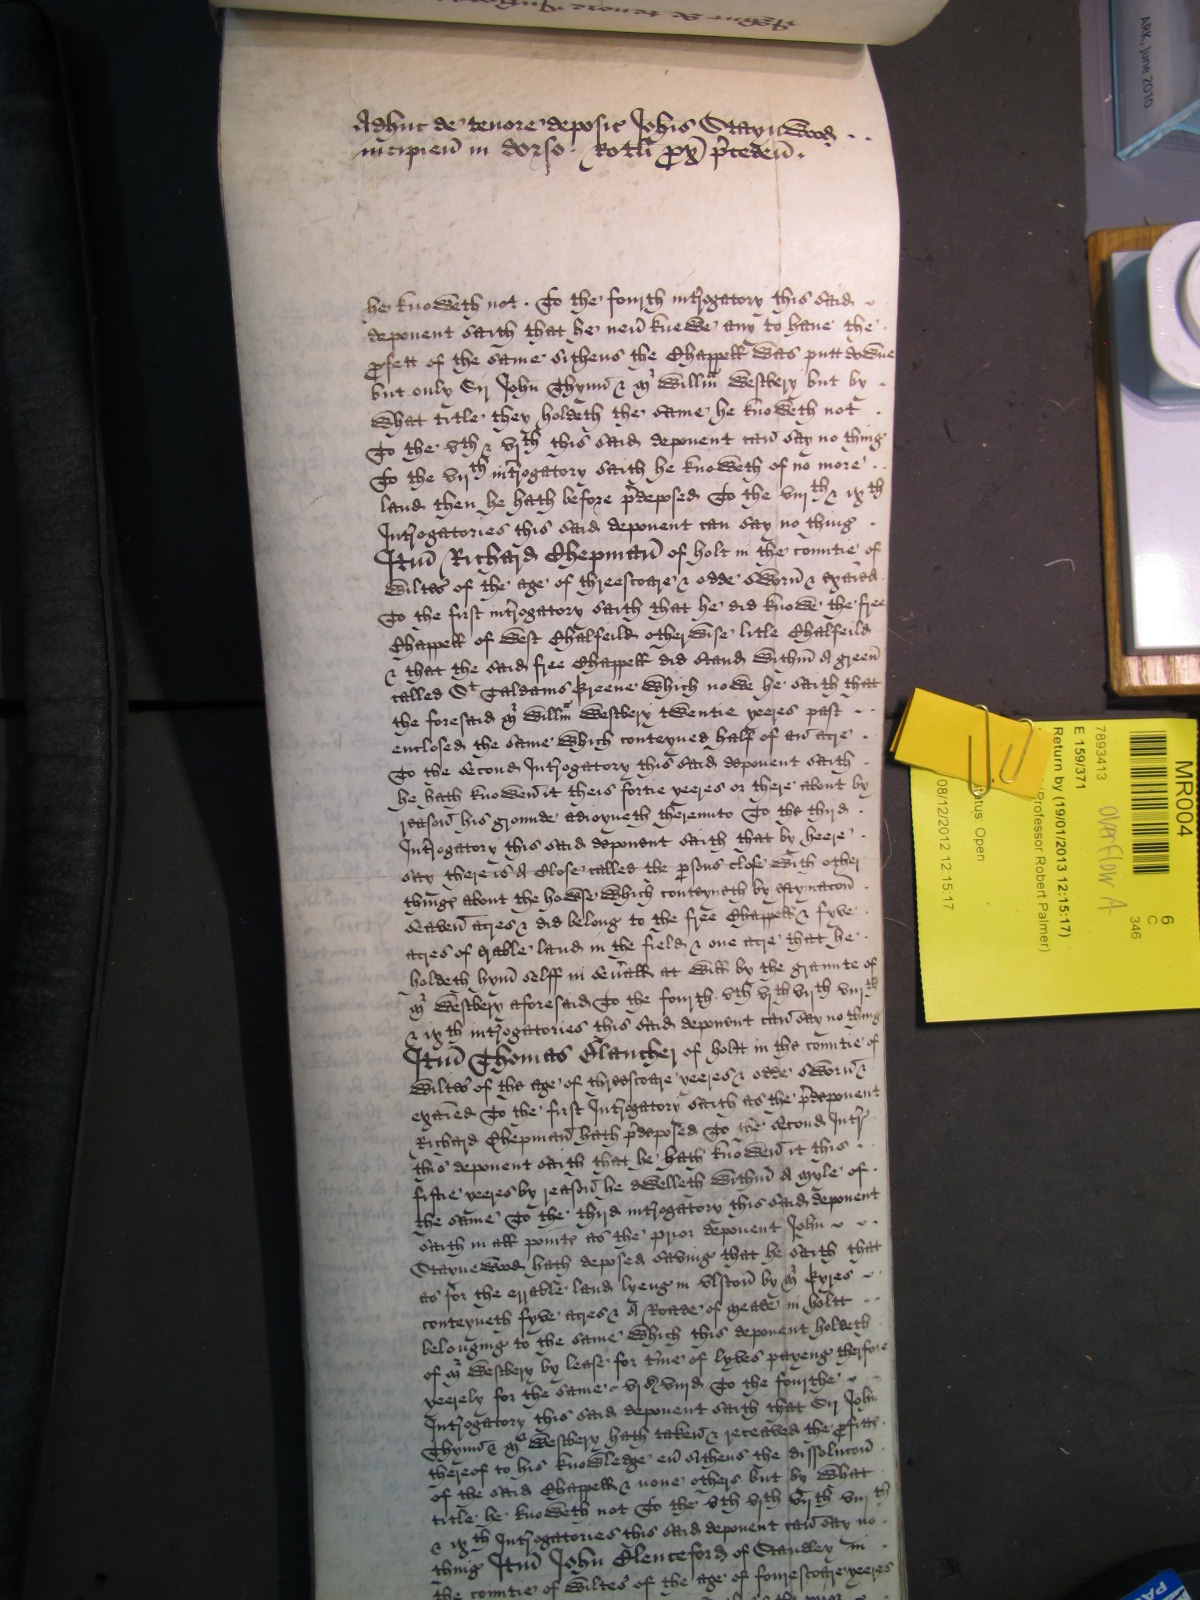 Adhuc de tenore deposic Johis Staynwood
incipien in dorso Rotli prox preceden.
he knoweth not. To the fourth introgatory this said
deponent saith that he nevr knewe any to haue the
profett of the same sithens the Chappell was putt downe
but only Sir John Thynn & Mr Willm Westbery but by
what title they holdeth the same he knoweth not
To the vth & vith this said deponent can say no thing
To the viith introgatory saith he knoweth of no more
land then he hath before predeposed To the viiith & ixth
Introgatories this said deponent can say no thing
Itm Richard Chepman of holt in the countie of
Wiltes of the age of threescore & odde sworn & exaied
To the first introgatory saith that he did knowe the free
Chappell of West Chalfeild otherwise litle Chalfeild
& that the said free Chappell did stand within A green
called St Taldams Greene which nowe he saith that
the foresaid Mr Willm Westbery twentie yeeres past
enclosed the same which conteyned half of an acre
To the second Introgatory this said deponent saith
he hath knowen it theis fortie yeeres or there about by
reason his grounde adioyneth therevnto To the third
Introgatory this said deponent saith that by heere
say there is A Close called the psons close with other
things about the howse which conteyneth by estymacon
Seaven acres & did belong to the free Chappell & fyve
acres of erable land in the field & one acre that he
holdeth hym selff in sevrall at will by the graunte of
Mr Westbery aforesaid To the fourth vth vith viith viiith
& ixth introgatories this said deponent can say no thing
Itm Thomas Glaucher of holtt in the countie of
Wiltes of the age of threescore yeeres & odde sworn &
exaied To the first Introgatory saith as the predeponent
Richard Chepman hath predeposed To the second Intr
this deponent saith that he hath knowen it this
fiftie yeeres by reason he dwelleth within A myle of
the same To the third introgatory this said deponent
saith in all points as the prior deponent John
Staynewood hath deposed saving that he saith that
as for the errable land lyeng in vlston by Mr Eyres
conteyneth fyve acres & A Roade of meade in holtt
belonging to the same which this deponent holdeth
of Mr Westbery by lease for tme of lyves payeng therfore
yeerely for the same vis viiid To the fourthe
Introgatory this said deponent saith that Sir John
Thynn & Mr Westbery hath taken & receaved the profitts
thereof to his knowledge evr sithens the dissolucon
of the said Chappell & none others but by what
title he knoweth not To the vth vith viith viiith
& ixth Introgatories this said deponent can say no
thing Itm John Glenceford of Standley in
the countie of Wiltes of the age of fourescore yeeres
ARK, June 2010
MR004
6
C
346
7893413
E 159/371
Overflow A
Return by (19/01/2013 12:15:17)
(Professor Robert Palmer)
Status: Open
08/12/2012 12:15:17